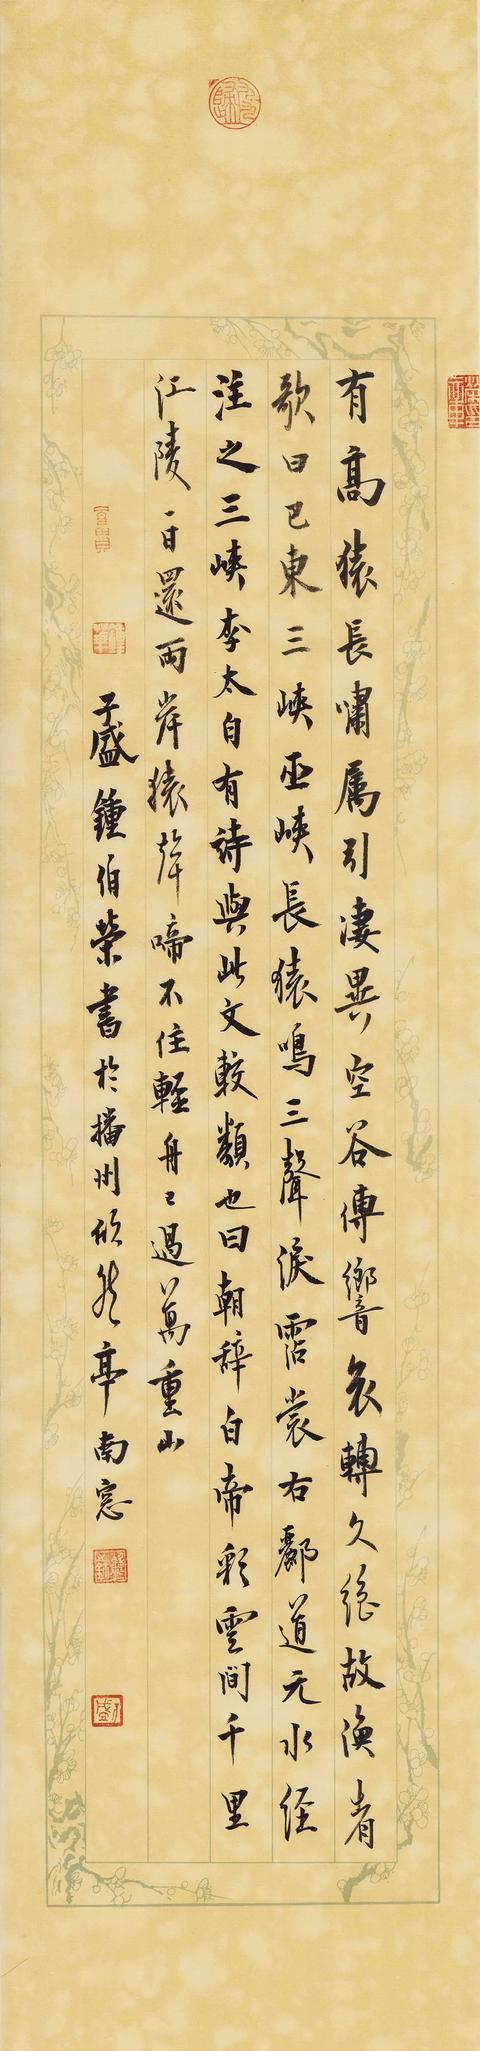 有高猿長嘯属引凄異空谷傳響哀轉久绝故渔者
歌曰巴東三峽巫峽長猿鳴三聲淚霑裳右酈道元水经
注之三峽李太白有詩與此文較類也曰朝辞白帝彩雲间千里
江陵一日還两岸猿聲啼不住輕舟已過萬重山
子盛鍾伯榮書於播州欣然亭南窓